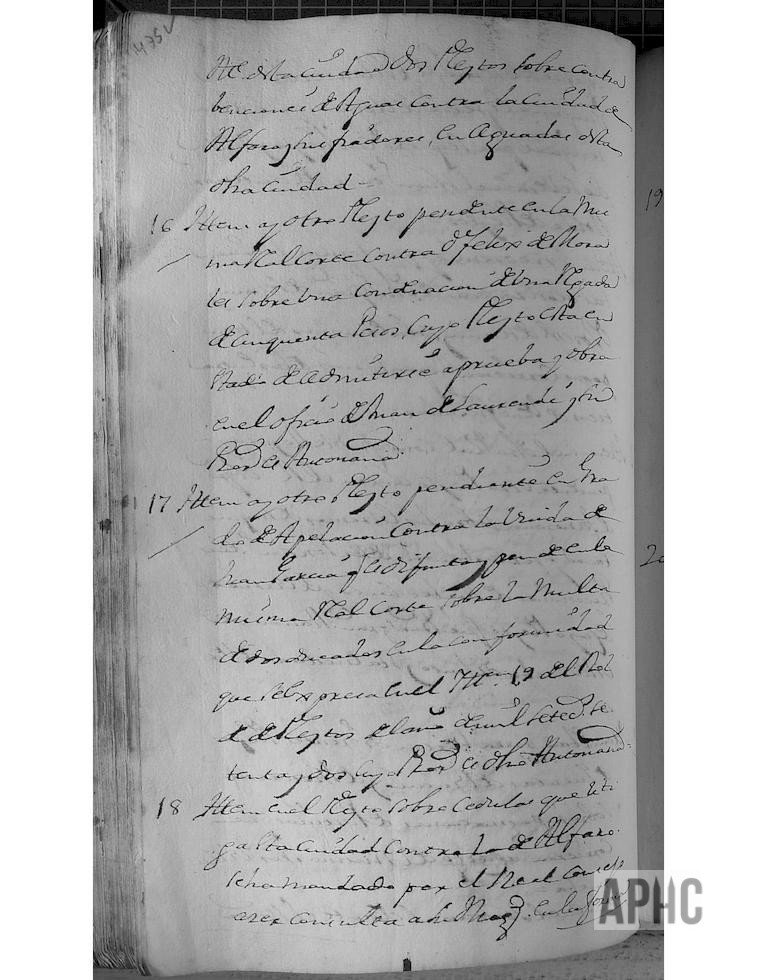 475v
esta Ciudad dos Pleytos sobre contra
benciones de Aguas contra la Ciudad de
Alfaro y sus fradores, en Aguadas desta
dha Ciudad =
16 Ittem ay otro Pleyto pendente en la mis
ma Rl Corte contra Dn felix de Mora
les sobre una Condenacion de una Regada
de cinquenta Pesos, Cuyo Pleyto esta en
stado de admitirse a prueba y obra
en el ofizio de Juan de Laurendi y su
Pror es Antoñana
17 Ittem ay otro Pleyto pendiente en Gra
do de Apelacion Contra la Viuda de
Juan Garcia qe es difunto y pende en la
misma Real Corte sobre la Multa
de dos ducados en la conformidad
que se expresa en el Ittem 19 del Rol
de Pleytos del año de mil setects. se
tenta y dos cuyo Pror es dho Antoñana =
18 Ittem en el Pleyto sobre Cedulas que liti
ga sta Ciudad Contra la de Alfaro
se ha mandado por el Real Consejo
acer Consulta a su Magd. en la forma
19
20
APHC